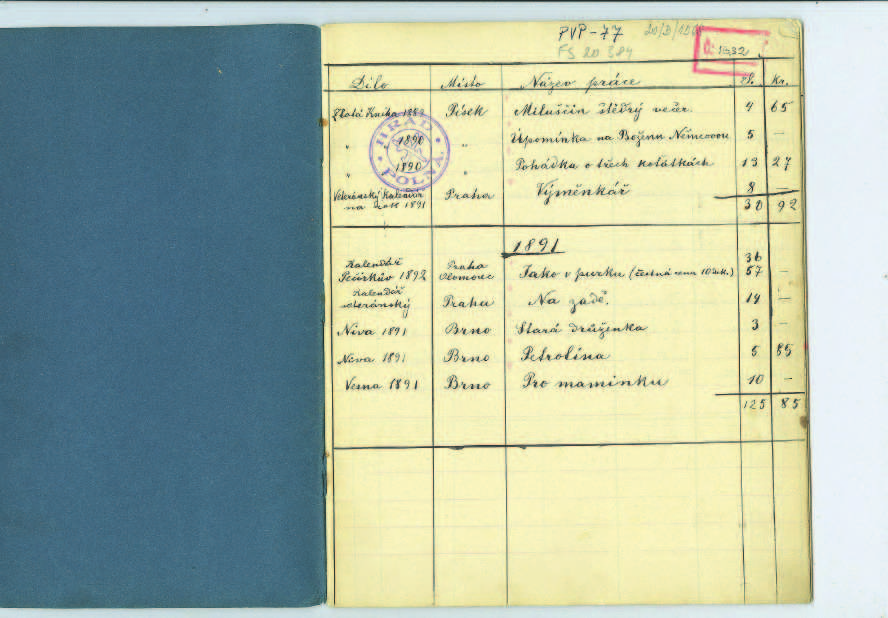 PVP-77
FS 20 384
1632
Dílo Místo Název práce zl. Kr.
Zlatá Kniha 1889 Písek Miluščin štědrý večer. 4 65
" 1890 " Upomínka na Boženu Němcovou 5 —
" 1890 " Pohádka o třech koťátkách 13 27
HRAD POLNÁ
Veteránský Kalendář na rok 1891 Praha Výměnkář 8 —
30 92
1891
36
Kalendář Praha
Pečírkův 1892 Olomouc Jako v purku (čestná cena 10 zl.) 57 —
Kalendář
veteránský Praha Na zádě. 14 —
Niva 1891 Brno Stará drůženka 3 —
Niva 1891 Brno Petrolína 5 85
Vesna 1891 Brno Pro maminku 10 —
125 85